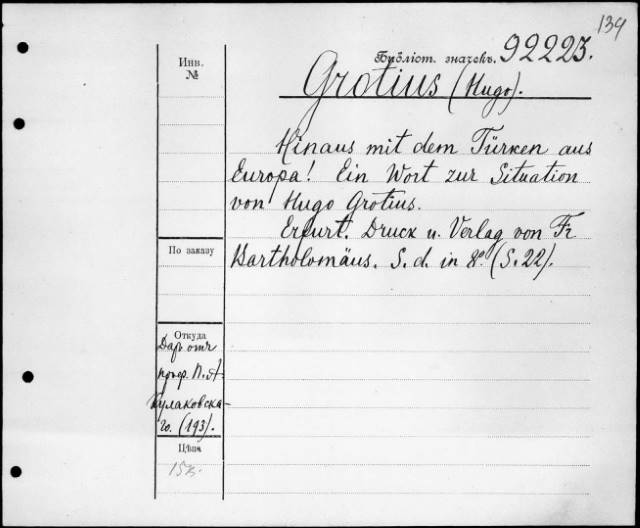 139
Инв.
№
Библіот. значекъ. 92223.
Grotius (Hugo).
Hinaus mit dem Türken aus
Europa! Ein Wort zur Situation
von Hugo Grotius.
Erfurt. Druck u. Verlag von Fr
Bartholomäus. S. d. in 8º. (S. 22).
По заказу
Откуда
Даръ отъ
проф. П. А.
Кулаковска-
го. (193).
Цѣна
15к.